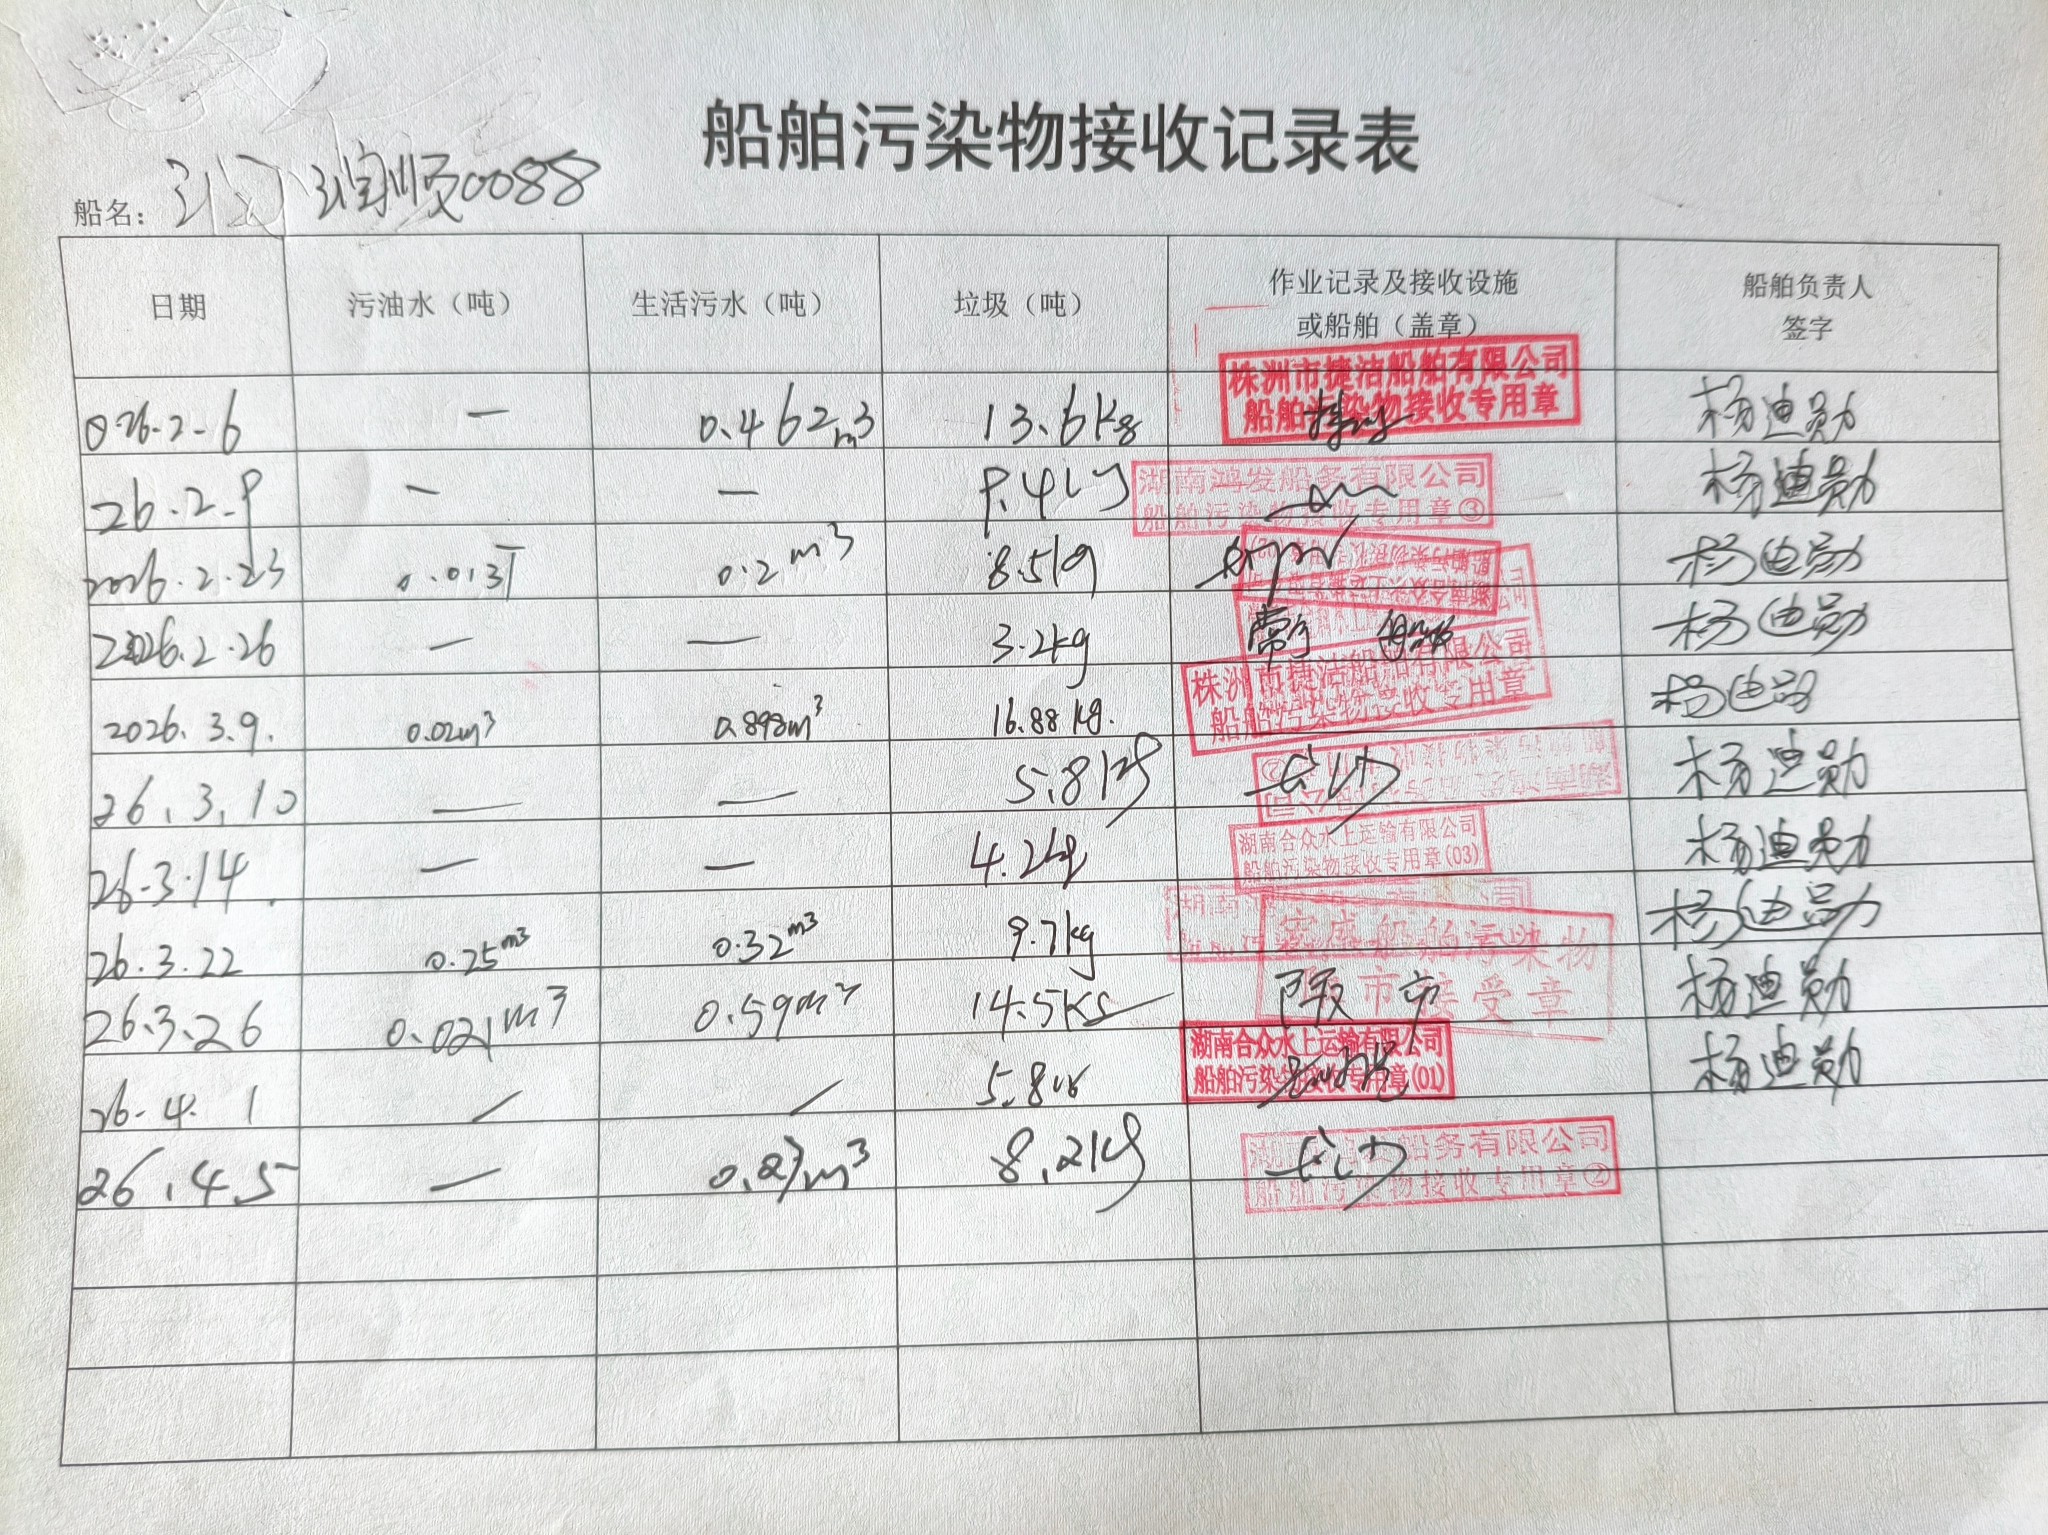 船舶污染物接收记录表
船名： 润顺0088
日期 污油水（吨） 生活污水（吨） 垃圾（吨） 作业记录及接收设施或船舶（盖章） 船舶负责人签字
026.2-6 — 0.462m3 13.6kg 株洲市捷洁船舶有限公司 船舶污染物接收专用章 杨迪勋
26.2.9 — — 9.4kg 湖南鸿发船务有限公司 船舶污染物接收专用章③ 杨迪勋
2026.2.23 0.013T 0.2m3 8.5kg 杨迪勋
2026.2.26 — — 3.2kg 杨迪勋
2026.3.9. 0.02m3 0.898m3 16.88kg. 株洲市捷洁船舶有限公司 船舶污染物接收专用章 杨迪勋
26.3.10 — — 5.8kg 长沙 杨迪勋
26-3.14. — — 4.2kg 湖南合众水上运输有限公司 船舶污染物接收专用章(03) 杨迪勋
26.3.22 0.25m3 0.32m3 9.7kg 杨迪勋
26.3.26 0.021m3 0.59m3 14.5KG 船舶污染物 市接受章 杨迪勋
26-4.1 / / 5.8kg 湖南合众水上运输有限公司 船舶污染物接收专用章(01) 杨迪勋
26.4.5 — m3 8.2kg 长沙 船务有限公司 船舶污染物接收专用章②